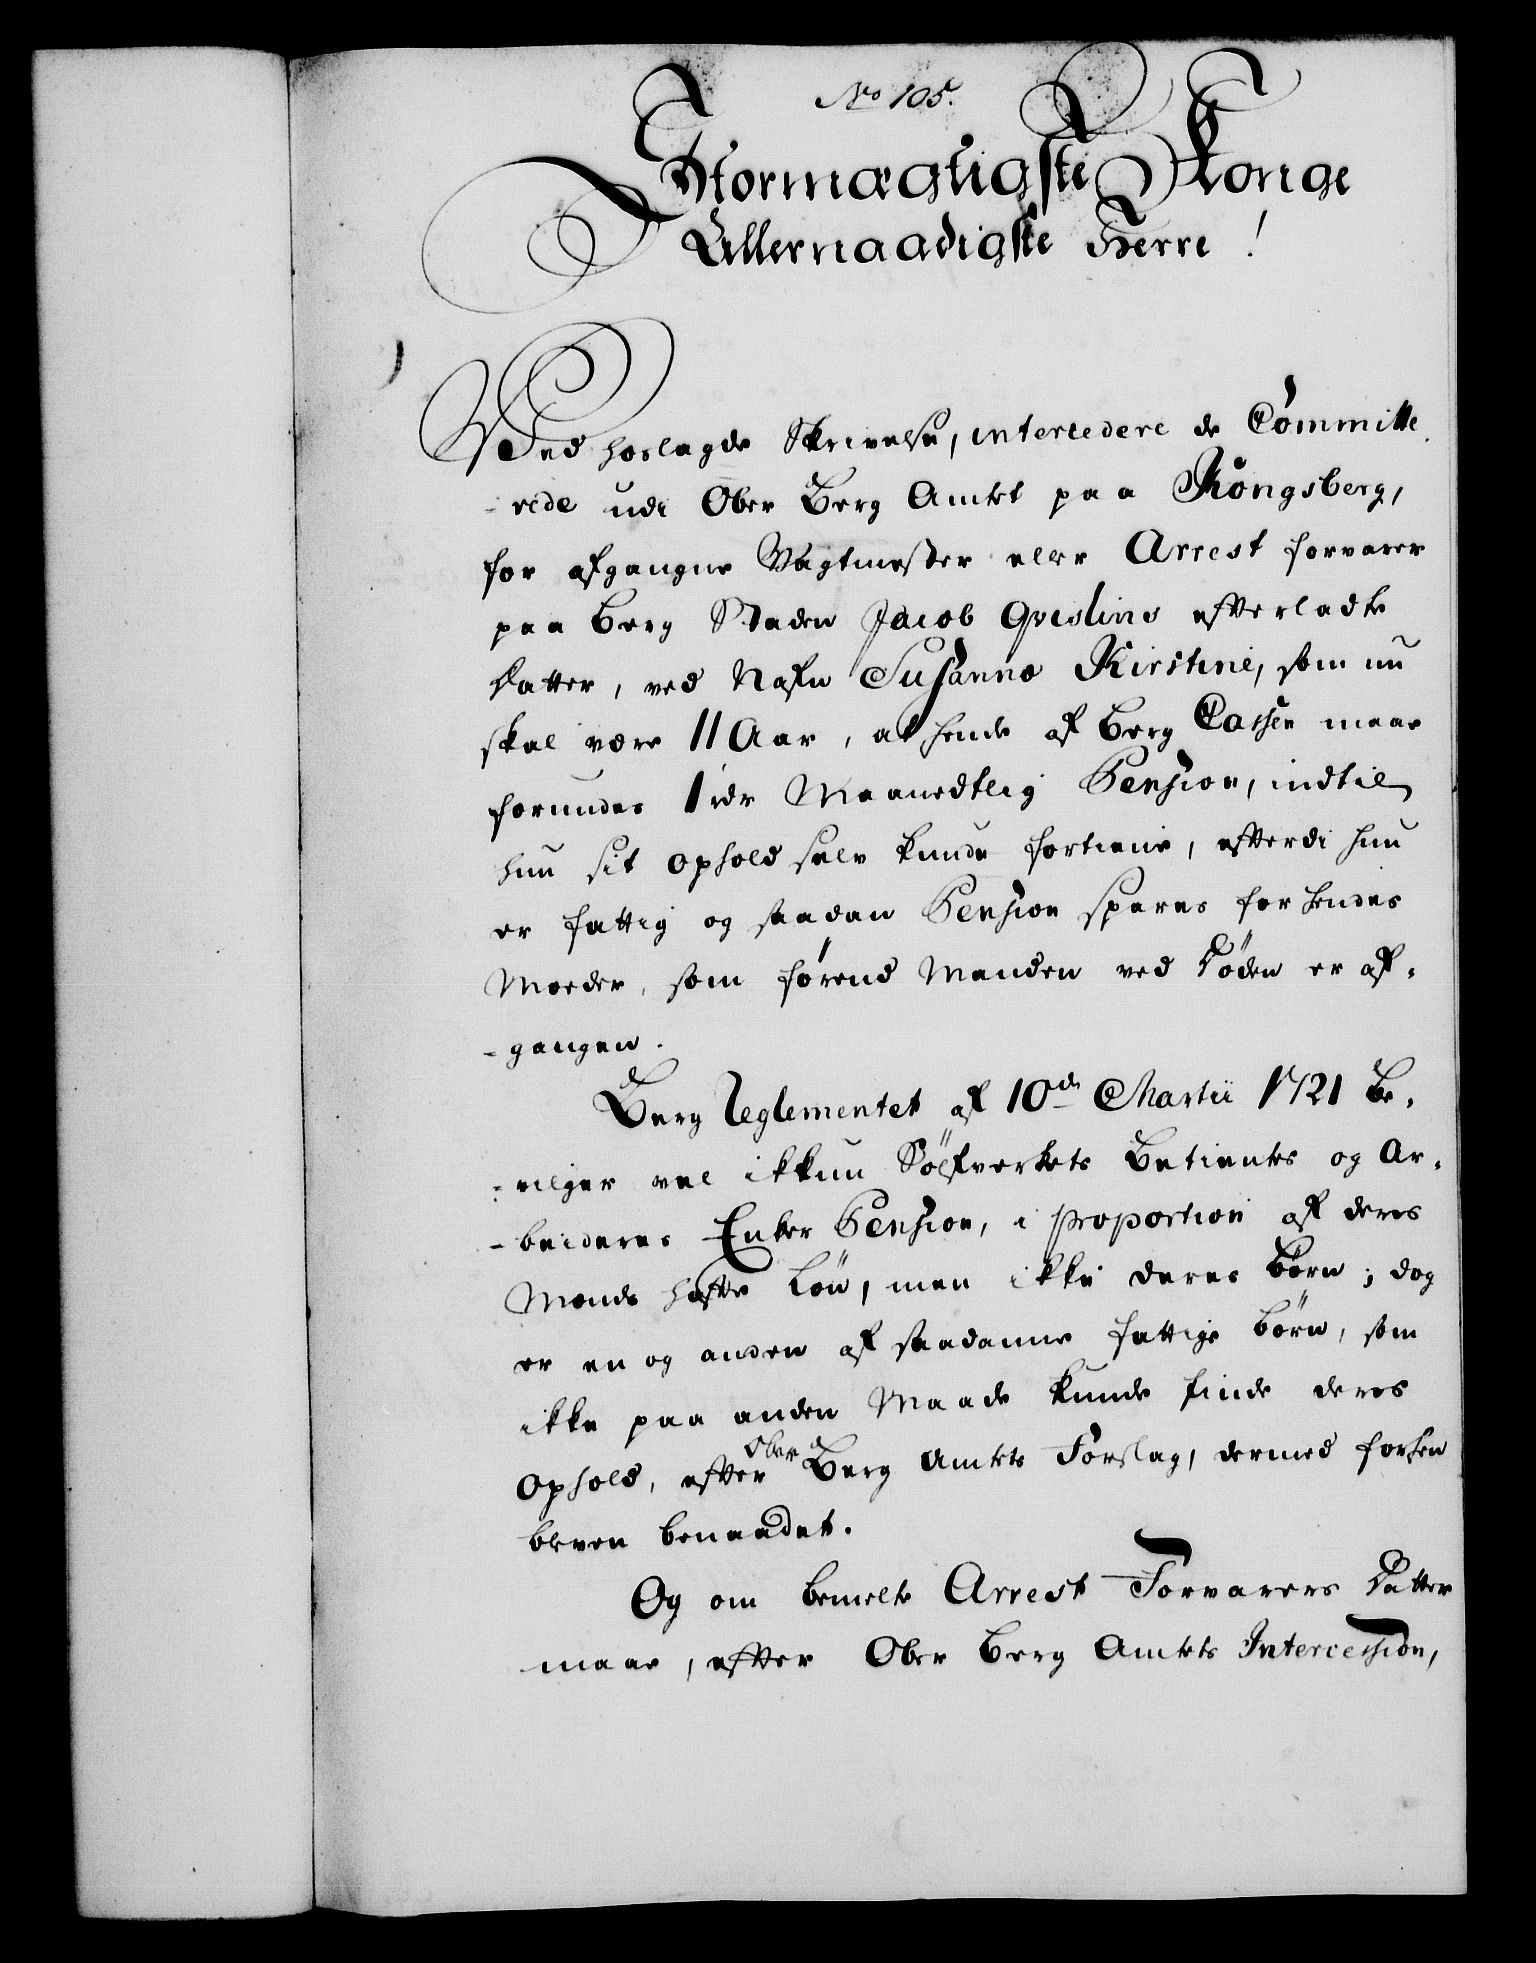 No 105.
Stormægtigste Konge
Allernaadigste Herre!
Ved hoslagde Skrivelse, intercedere de Committe
-rede udi Ober Berg Amtet paa Kongsberg,
for afgangne Vagtmester eller Arrest forvarer
paa Berg Staden Jacob Qvislins efterladte
Datter, ved Nafn Susanna Kirstine, som nu
skal være 11 Aar, at hende af Berg Cassen maae
forundes 1 rdr Maanedtlig Pension, indtil
hun sit ophold selv kunde fortiene, efterdi hun
er fattig og saadan Pension spares for hendes
Moder, som førend Manden ved Døden er af-
-gangen.
Berg Reglementet af 10de Martii 1721 be-
-vilger vel ikkun Sølfverkets Betientes og Ar-
-beideres Enker Pension, i proportion af deres
Mænds hafte Løn, men ikke deres Børn; dog
er en og anden af saadanne fattige børn, som
ikke paa anden Maade kunde finde deres
Ophold, efter Ober Berg Amtets Forslag, dermed forhen
bleven benaadet.
Og om bemelte Arrest Forvarers Datter
maae, efter Ober Berg Amtets Intercession,